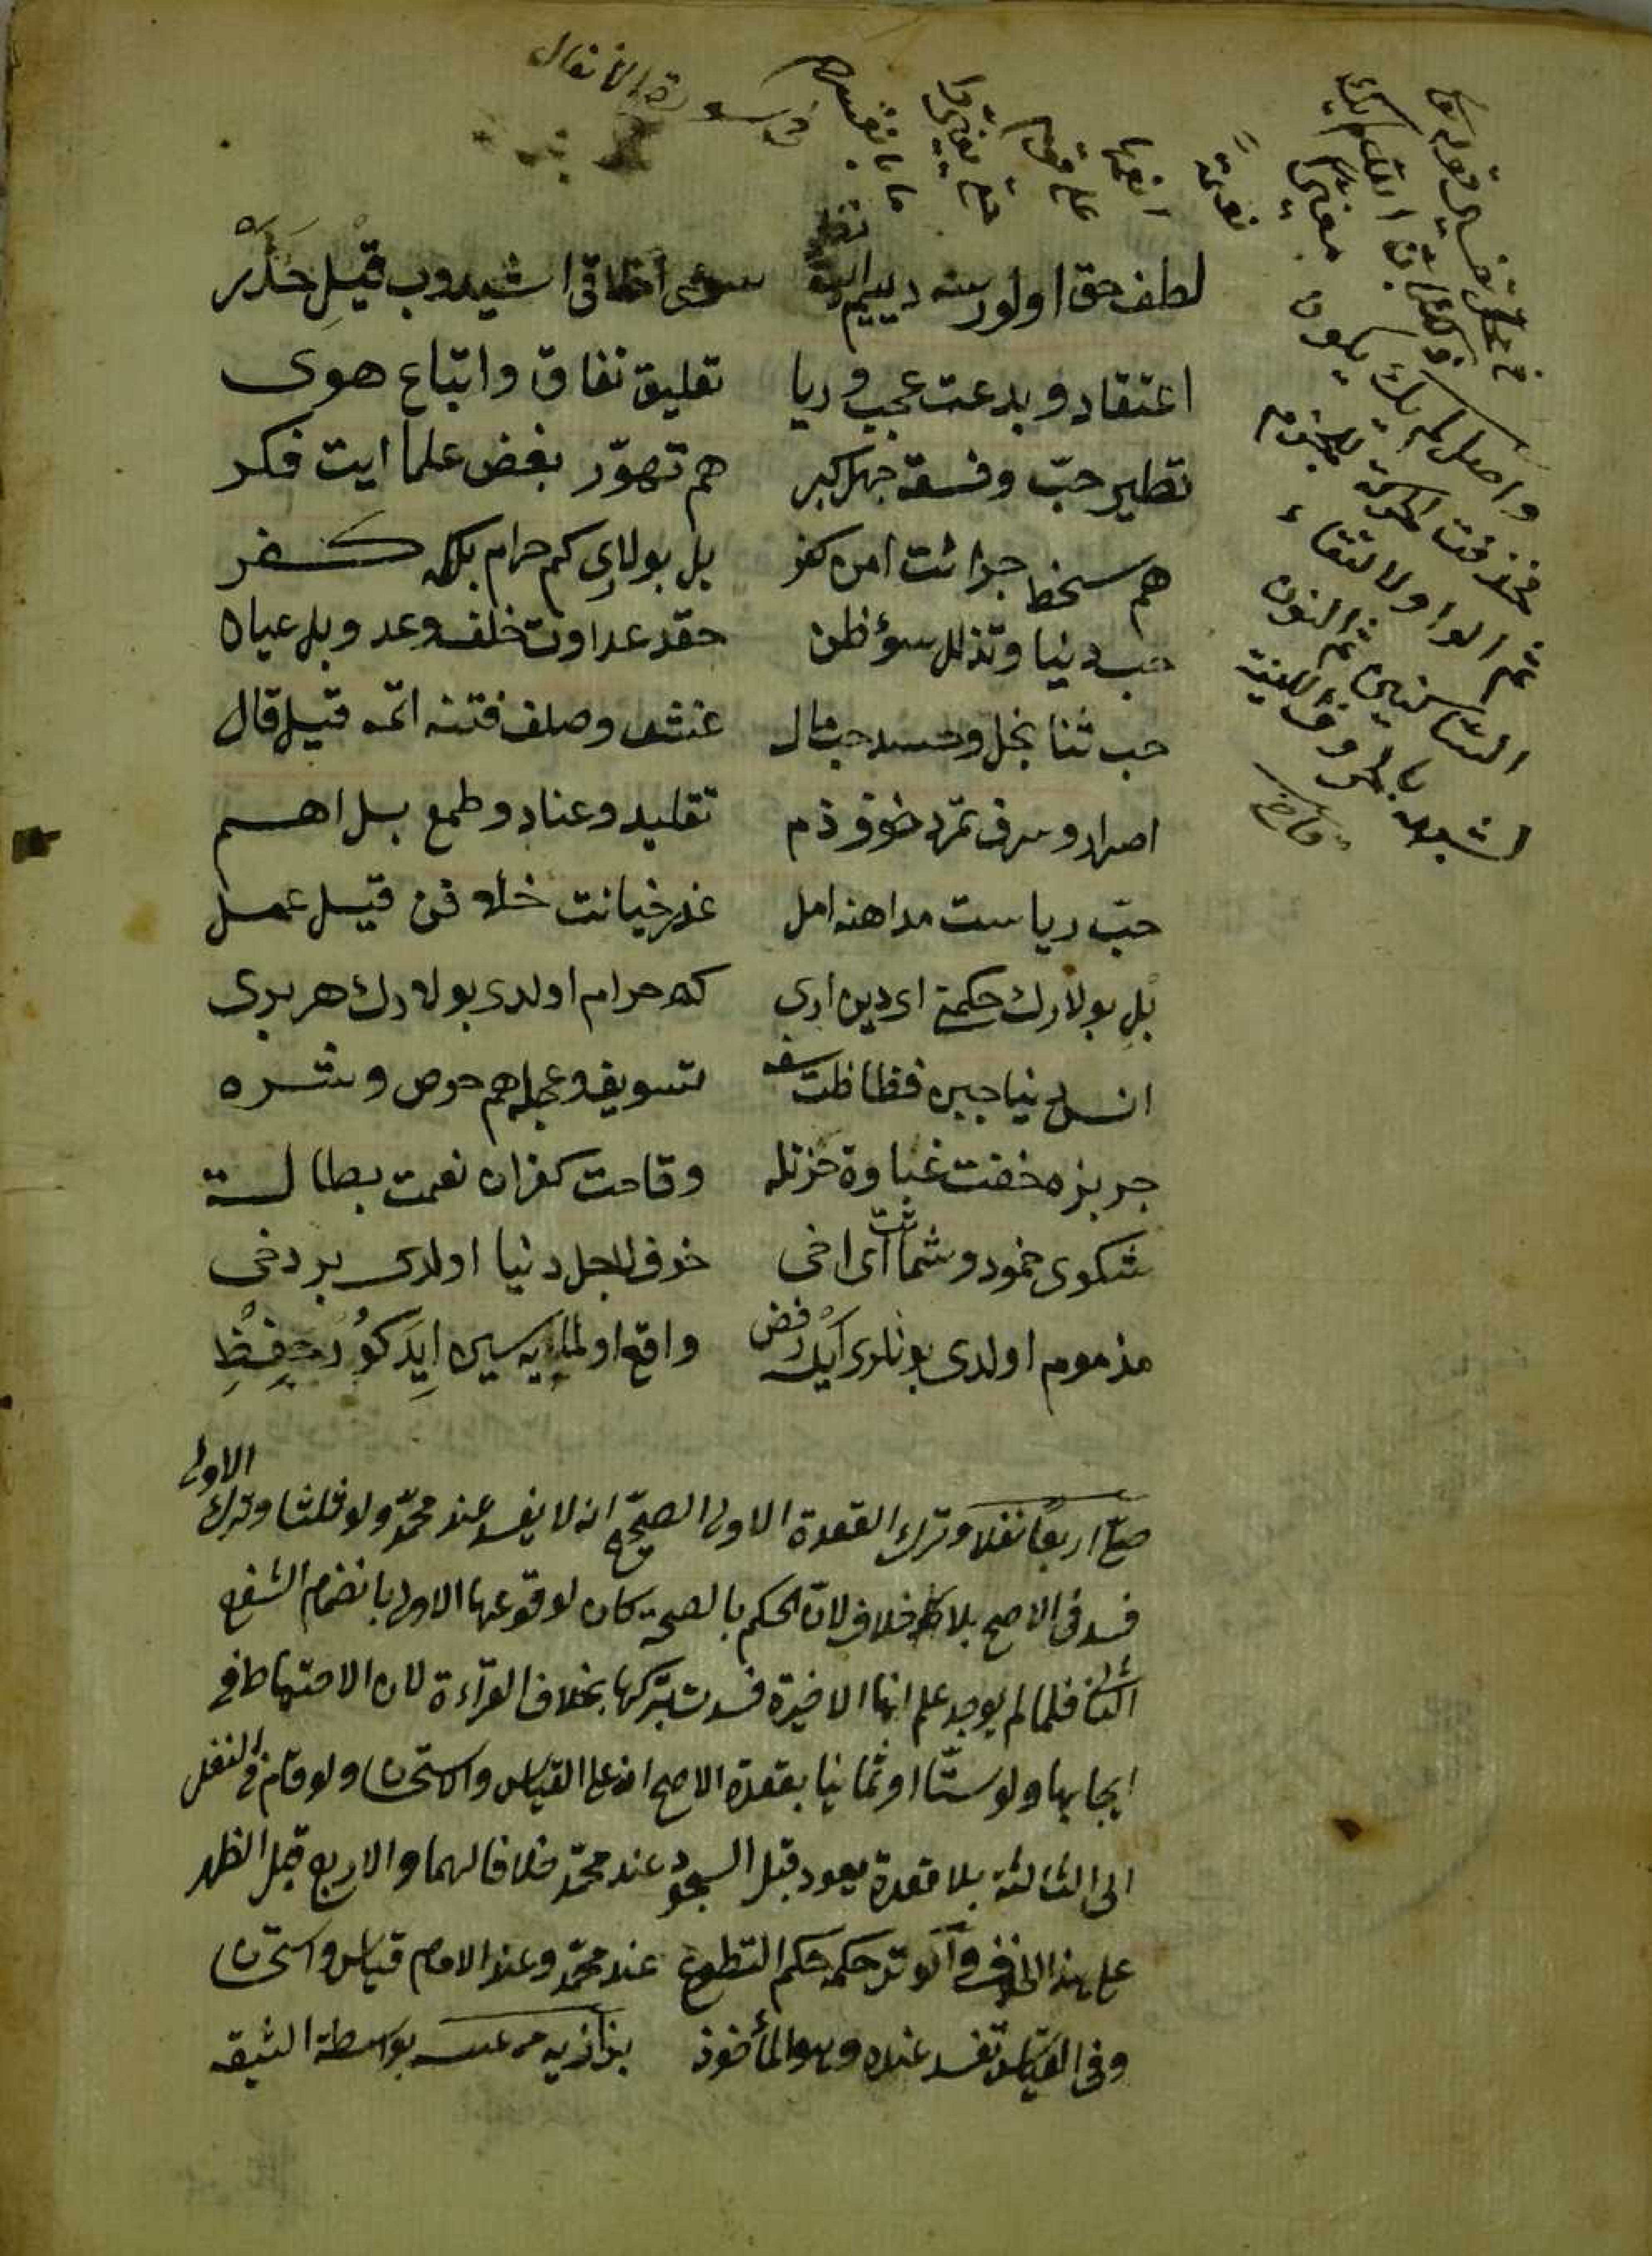 في محل تفسير قوله تعالى
ذلك بأن الله لم يك
مغيرا
نعمة
انعمها
على قوم
حتى يغيروا
ما بانفسهم
في سورة الأنفال
واصل لم يك يكون
فحذفت الحركة للجزم
ثم الواو لالتقاء
الساكنين ثم النون
لشبهه بالحروف اللينة
قاضى
لطف حق اولور سنه دييم سوء اخلاقى اشيدوب قيل حذر
اعتقاد و بدعت عجب و ريا تعليق نفاق و اتباع هوى
تطير حب و فسق جهل كبر هم تهور بغض علما ايت فكر
هم سخط جرائت امن كفر بل بولاري كم حرام بلكه كفر
حب دنيا و تذلل سوء ظن حقد عداوت خلف وعد و بل عيان
حب ثنا بخل و حسد حب مال غش و صلف فتنه اتمه قيل قال
اصرار و سرف تمرد خوف ذم تقليد و عناد و طمع بل اهم
حب رياست مداهنه امل غدر خيانت خله فن قيل عمل
بل بولارك حكمن اى دين ارى كه حرام اولدى بولردك هر برى
انس دنيا جبن فظاظت سفه تسويف و عجله هم حرص و شره
جربزه خفت غباوة حزنله وقاحت كفران نعمت بطالت
شكوى خمود و شماتت اى اخى خوف لاجل دنيا اولدى بر دخى
مذموم اولدى بونلرى ايله رفض واقع اولمايه سين ايدكور حفظ
صلى اربعا نفلا و ترك القعدة الاولى الصحيح انه لا يفسد عند محمد ولو ثلثا وترك الاولى
فسد فى الاصح بلا خلاف لان الحكم بالصحة كان لوقوعها الاولى بانضمام الشفع
الثانى فلما لم يوجد علم انها الاخيرة فسدت بتركها بخلاف القراءة لان الاحتياط في
ايجابها ولو ستا او ثمانيا بقعدة الاصح انه على القياس والاستحسان ولو قام في النفل
الى الثالثة بلا قعدة يعود قبل السجود عند محمد خلافا لهما والاربع قبل الظهر
على هذا الخلاف والوتر حكمه حكم التطوع عند محمد وعند الامام قياس واستحسان
وفى القياس تفسد عنده وهو المأخوذ بزازيه من عينه بواسطة الثيقه